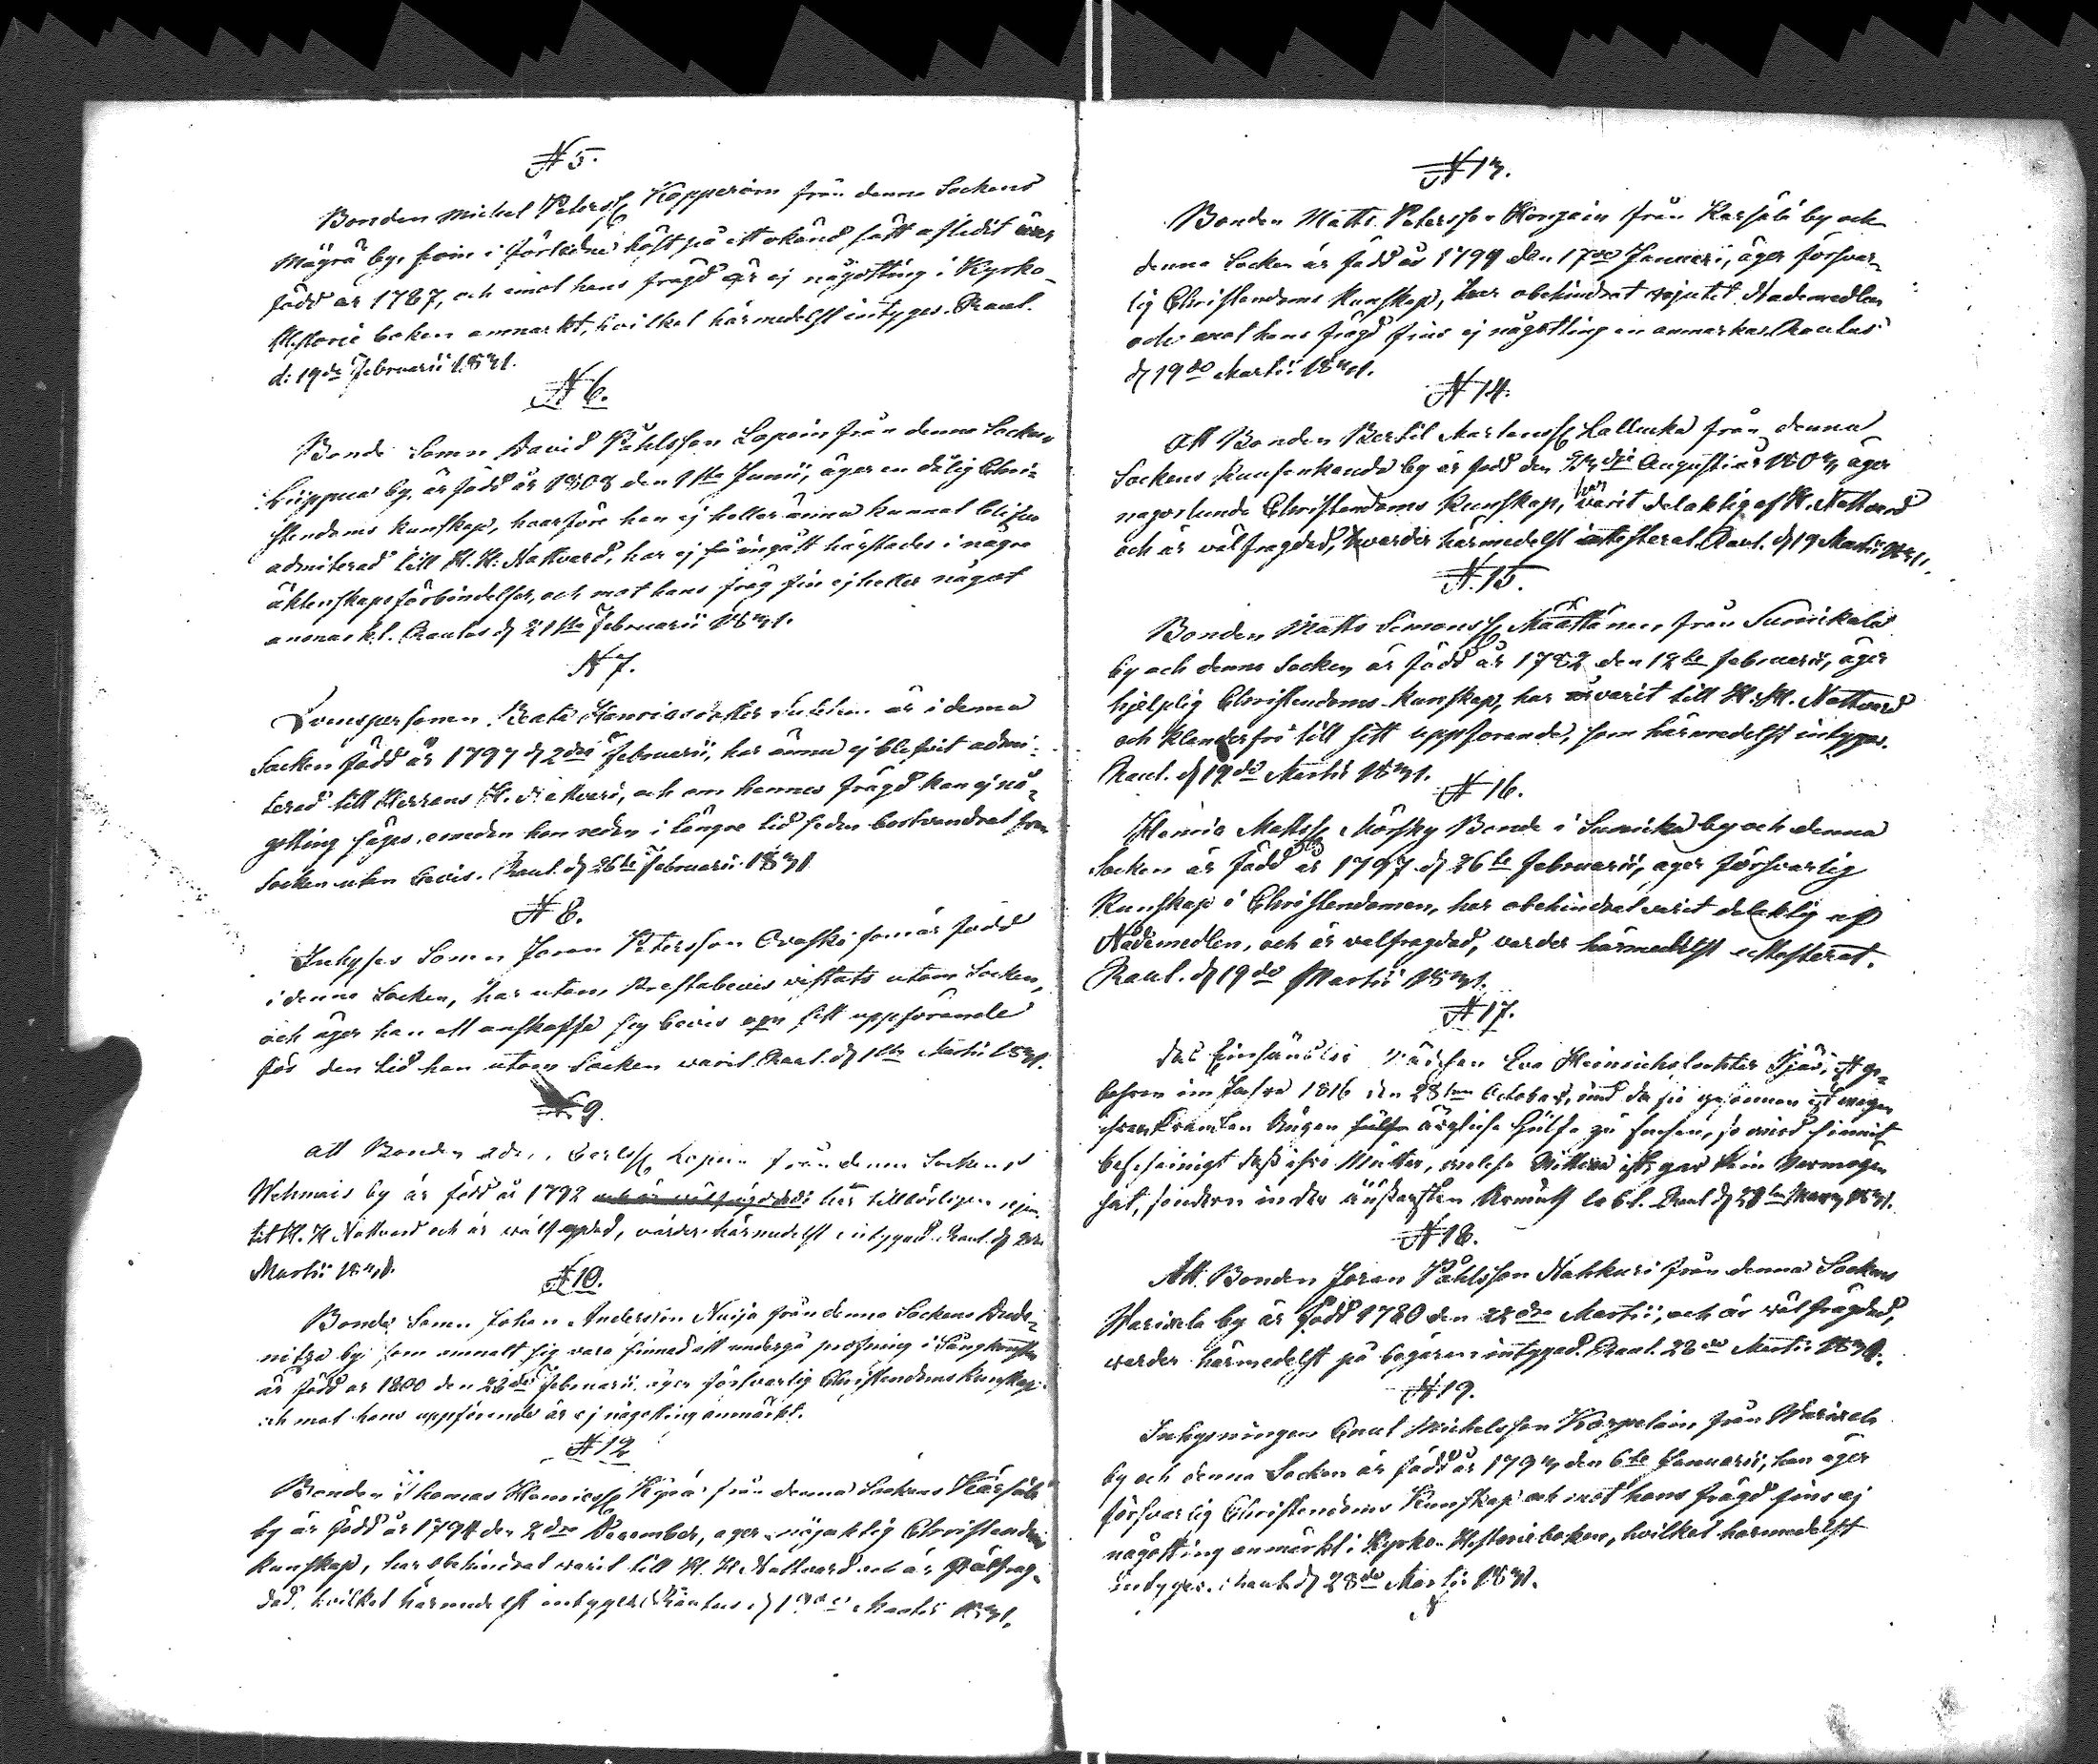 N 5.
Bonden Michel Peterss. Kopperoin från denna Sockens
Mägrä by, som i förledne höst på ett okänd sätt afledit war
född år 1787, och emot hans frägd är ej någotting i Kyrko-
Historie boken anmarkt, hvilket härmedelst intyges. Raut.
d: 19de Februarii 1831.
N 6.
Bonde Sonen David Påhlsson Lapoin från denna Sockens
by, är född år 1808 den 1ste Junii, äger en dålig Chri-
stendoms kunskap, hvarföre han ej heller ännu kunnat blifva
admiterad till H. H. Nattvard, har ej ingått härstädes i nagra
äktenskapsförbindelser, och mot hans fräg fin ej heller något
anmarkt. Rautus d. 21ste Februarii 1831.
N 7.
Qvinspersonen Beata Henricsdotter är i denna
Socken född år 1797 d. 2dra Februarii, har ännu ej blifvit admi-
terad till Herrans H. Nattvard, och om hennes frägd kan ej nå-
gotting säges, emedan hon redan i längre tid sedan bortvandrat från
Socken utan bevis. Raut. d. 26te Februarii 1831
N 8.
Inhyses Sonen Joran Petersson Orasko som är född
i denna Socken, har utan Prestabevis vistats utom Socken,
och äger han att anskaffa sig bevis om sitt uppförande
för den tid han utom Socken varit. Raut. d. 1ste Martii 1831.
N 9.
att Bonden Lapoin från denna Sockens
Wehmais by är född år 1792 har tillbörligen njutit
H. H. Nattvard och är välfrägdad, varder härmedelst intygad. Raut. d.
Martii 1831.
N 10.
Bonde Sonen Johan Andersson Nuija från denna Sockens
by som anmält sig vara sinnad att undergå profning i Sångkonsten
är född år 1800 den 23dje Februarii, äger försvarlig Christendoms kunskap
och mot hans uppförande är ej någotting anmärkt.
N 12
Bonden Thomas Henricss. från denna Sockens Karsala
by är född år 1794 den 2dra December, äger nöjaktig Christendoms
kunskap, har obehindrat varit till H. H. Nattvard och är Välfräg-
dad, hvilket härmedelst intyges Rautus d. Martii 1831.
N 13.
Bonden Matts Petersson Honjain från Karsala by och
denna Socken är född år 1799 den 17de Januarii, äger försvar-
lig Christendoms kunskap, har obehindrat njutit Nademedlen
och mot hans frägd fins ej någotting an anmarka. Rautus
d 19de Martii 1831.
N 14.
Att Bonden Bertil Martenss. Lallucka från denna
Sockens by är född den Augusti år 1803, äger
nagorlunda Christendoms kunskap, har varit delaktig af H. Nattvard
och är välfragdad, warder härmedelst attesterat. Raut. d 19 Martii 1831.
N 15.
Bonden Matts Simonss. Määttänen från Surnikala
by och denna Socken är född år 1782 den 12te Februarii, äger
hjelplig Christendoms kunskap, har varit till H. H. Nattvard
och klanderfri till sitt uppförande, som härmedelst intyges.
Raut. d 19de Martii 1831.
N 16.
Henric Matss. Mörsky Bonde i Surnikala by och denna
Socken är född år 1797 d 26te Februarii, äger försvarlig
kunskap i Christendomen, har obehindrat varit delaktig af
Nådemedlen, och är valfragdad, varder härmedelst attesterat.
Raut. d 19de Martii 1831.
N 17.
Das Mädchen Eva Heinrichstochter ist ge-
bohren im Jahre 1816 den 28ten October, und da sie gesonnen ist wegen
ihrer kranken Augen hülfe ärzliche Hülfe zu suchen, so wird hiemit
bescheinigt daß ihre Mutter, welche Wittwe ist, gar kein Vermögen
hat, sondern in der äußersten Armuth lebt. Raut d 28ten März 1831.
N 18.
Att Bonden Joran Påhlsson Nahkuri från denna Sockens
Warixela by är född 1780 den 22dra Martii, och är välfrägdad,
warder härmedelst på begäran intygad. Raut. 28de Martii 1831.
N 19.
Inhysningen Enut Michelsson Korpelain från Warixela
by och denna Socken är född år 1793 den 6te Januarii, han äger
försvarlig Christendoms kunskap och mot hans frägd fins ej
någotting anmärkt i Kyrko-Historieboken, hvilket harmedelst
intyges. Raut. d 28de Martii 1831.